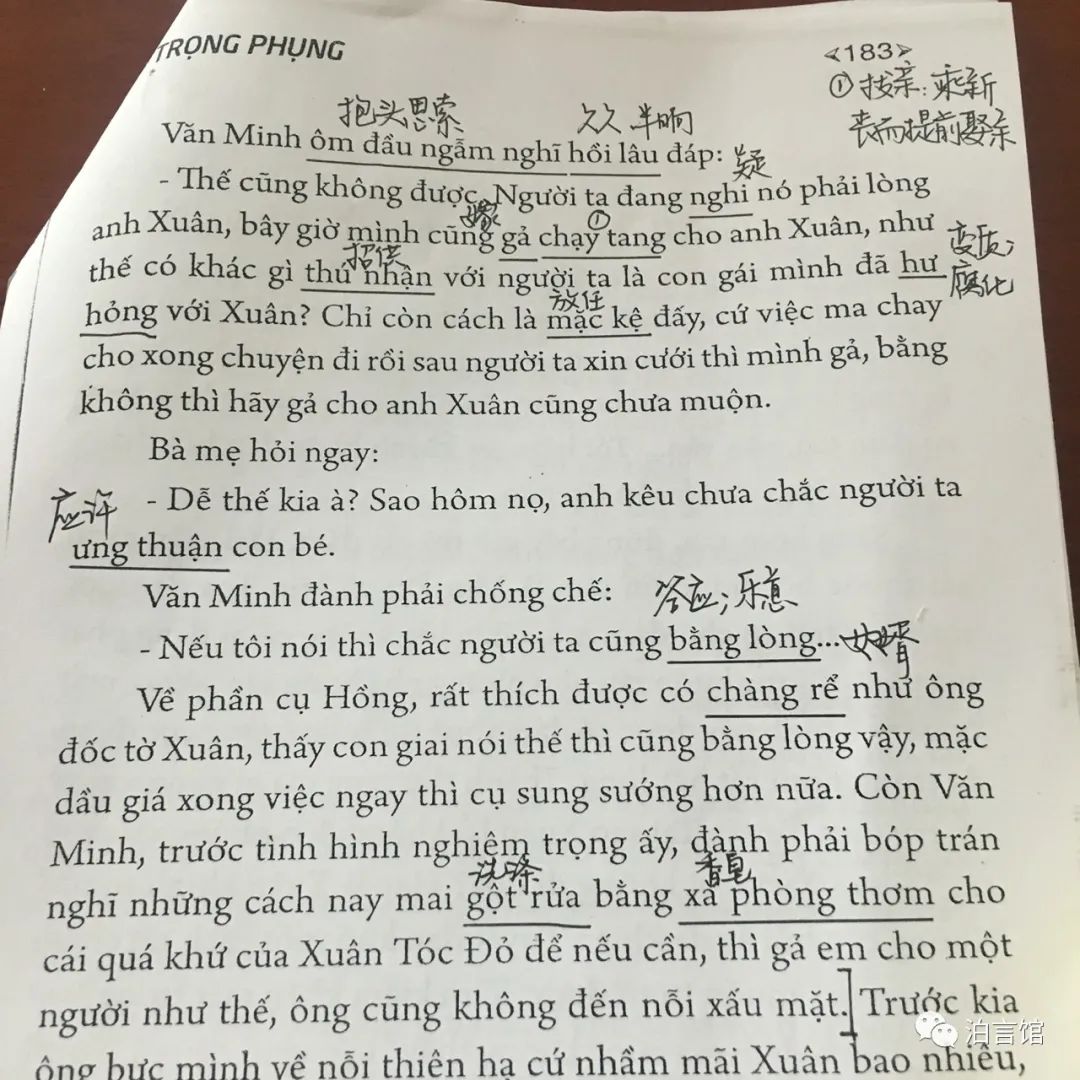 TRỌNG PHỤNG
<183>
① 找亲：乘新
丧而提前娶亲
抱头思索
久久 半晌
Văn Minh ôm đầu ngẫm nghĩ hồi lâu đáp:
疑
- Thế cũng không được. Người ta đang nghi nó phải lòng
嫁
①
anh Xuân, bây giờ mình cũng gả chạy tang cho anh Xuân, như
变质；
腐化
招供
thế có khác gì thú nhận với người ta là con gái mình đã hư
放任
hỏng với Xuân? Chỉ còn cách là mặc kệ đấy, cứ việc ma chay
cho xong chuyện đi rồi sau người ta xin cưới thì mình gả, bằng
không thì hãy gả cho anh Xuân cũng chưa muộn.
Bà mẹ hỏi ngay:
应许
- Dễ thế kia à? Sao hôm nọ, anh kêu chưa chắc người ta
ưng thuận con bé.
Văn Minh đành phải chống chế:
答应；乐意
- Nếu tôi nói thì chắc người ta cũng bằng lòng...
女婿
Về phần cụ Hồng, rất thích được có chàng rể như ông
đốc tờ Xuân, thấy con giai nói thế thì cũng bằng lòng vậy, mặc
dầu giá xong việc ngay thì cụ sung sướng hơn nữa. Còn Văn
Minh, trước tình hình nghiêm trọng ấy, đành phải bóp trán
洗涤
香皂
nghĩ những cách nay mai gột rửa bằng xà phòng thơm cho
cái quá khứ của Xuân Tóc Đỏ để nếu cần, thì gả em cho một
người như thế, ông cũng không đến nỗi xấu mặt.] Trước kia
ông bực mình về nỗi thiên hạ cứ nhầm mãi Xuân bao nhiêu,
泊言馆